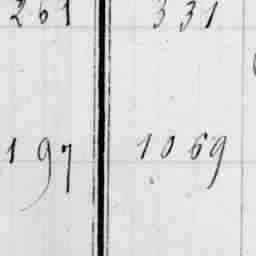 261 331
197 1069